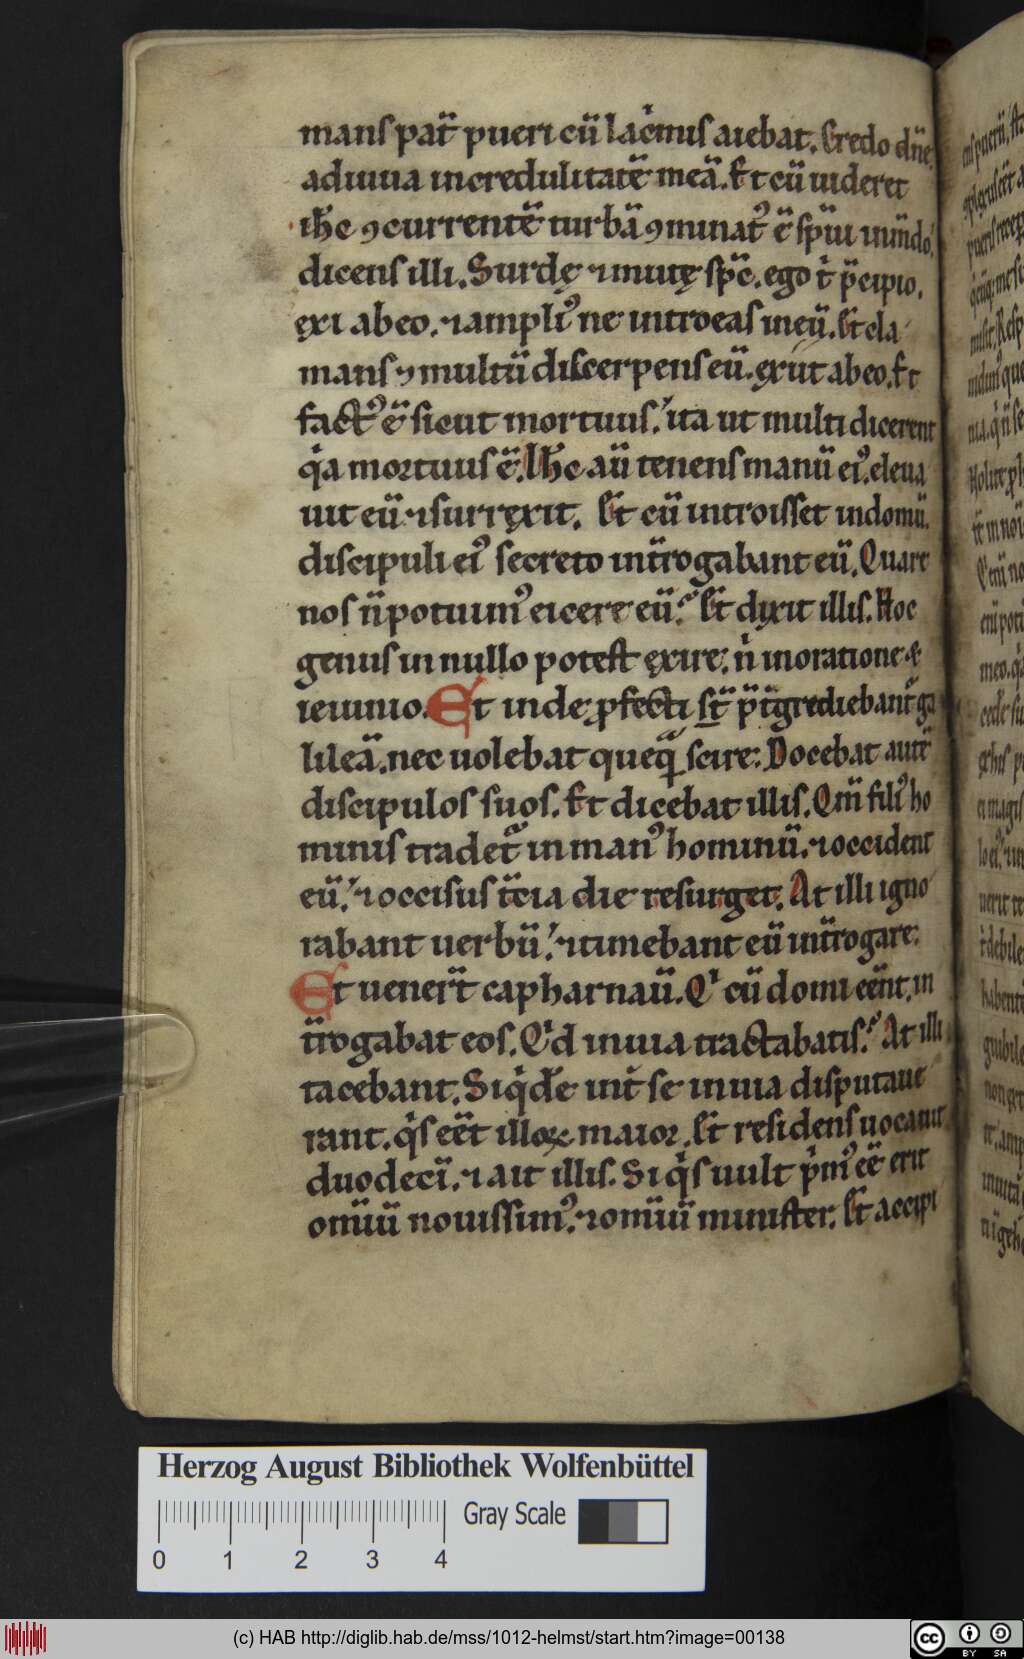 mans pat̄ pueri cū lac̓mis aiebat. Credo dn̄e
adiuua incredulitatē meā. Et cū uideret
ih̄c ꝯcurrentē turbā ꝯminatꝰ ē sp̄iu inmūdo.
dicens illi. Surdę ⁊ mutę sp̄c. ego t̓ p̄cipio.
exi ab eo. ⁊ ampliꝰ ne introeas in eū. Et cla
mans ⁊ multū discerpens eū. exiit ab eo. Et
factꝰ ē sicut mortuus. ita ut multi dicerent
q̓a mortuus ē. Ih̄c aū tenens manū eiꝰ. eleua
uit eū. ⁊ surrexit. Et cū introisset in domū.
discipuli eiꝰ secreto int̄rogabant eū. Quare
nos n̄ potuimꝰ eicere eū. Et dixit illis. Hoc
genus in nullo potest exire. n̓ in oratione &
ieiunio. Et inde ꝓfecti st̄ p̄t̓grediebant᷑ ga
lileā. nec uolebat quēq̄ scire. Docebat autē
discipulos suos. Et dicebat illis. Qm̄ filiꝰ ho
minis tradet᷑ in manꝰ hominū. ⁊ occident
eū. ⁊ occisus t̄cia die resurget. At illi igno
rabant uerbū. ⁊ timebant eū int̄rogare.
Et uener̄t capharnaū. Qͥ cū domi eēnt. in
t̄rogabat eos. Qͥd in uia tractabatis. At illi
tacebant. Siq̓dē int̓ se in uia disputaue
rant. q̓s eēt illoꝝ maior. Et residens uocauit
duodecī. ⁊ ait illis. Si q̓s uult p̓mꝰ eē erit
om̄iū nouissimꝰ. ⁊ om̄iū minister. Et accipi
Herzog August Bibliothek Wolfenbüttel
Gray Scale
0 1 2 3 4
(c) HAB http://diglib.hab.de/mss/1012-helmst/start.htm?image=00138
cc BY SA